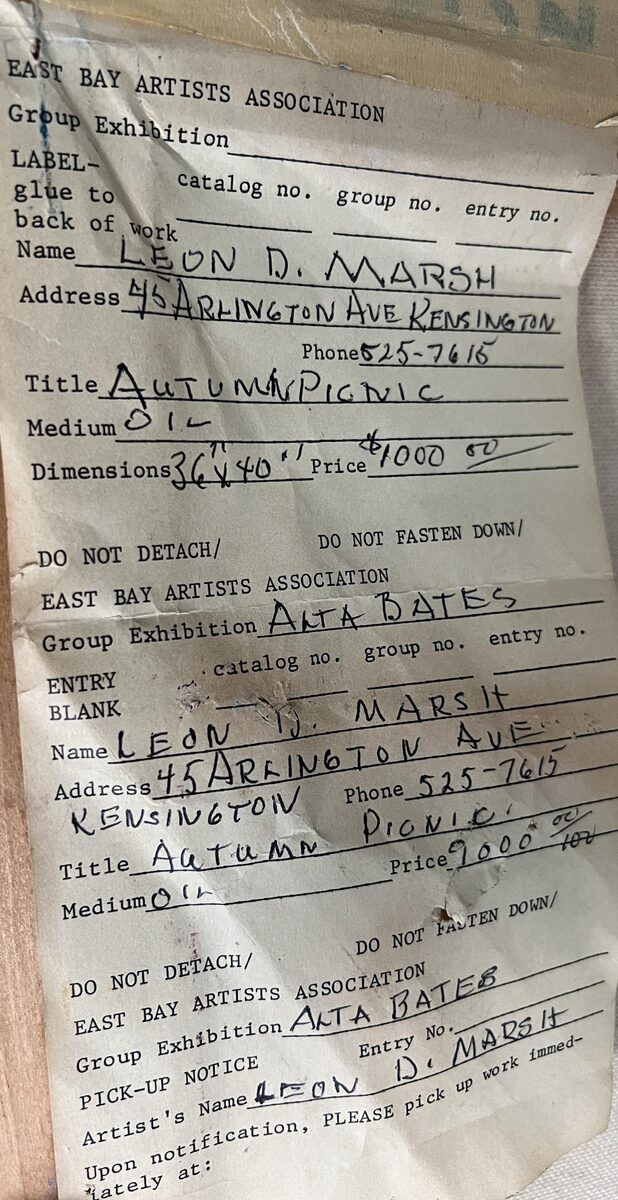 EAST BAY ARTISTS ASSOCIATION
Group Exhibition
LABEL-
glue to
back of work
catalog no. group no. entry no.
Name LEON D. MARSH
Address 45 ARLINGTON AVE KENSINGTON
Phone 525-7615
Title AUTUMN PICNIC
Medium OIL
Dimensions 36" x 40" Price $1000 00
DO NOT DETACH/ DO NOT FASTEN DOWN/
EAST BAY ARTISTS ASSOCIATION
Group Exhibition ALTA BATES
ENTRY
BLANK
catalog no. group no. entry no.
Name LEON D. MARSH
Address 45 ARLINGTON AVE
KENSINGTON Phone 525-7615
Title AUTUMN PICNIC.
Medium OIL Price 1000 00/100
DO NOT DETACH/ DO NOT FASTEN DOWN/
EAST BAY ARTISTS ASSOCIATION
Group Exhibition ALTA BATES
PICK-UP NOTICE Entry No.
Artist's Name LEON D. MARSH
Upon notification, PLEASE pick up work immed-
iately at: